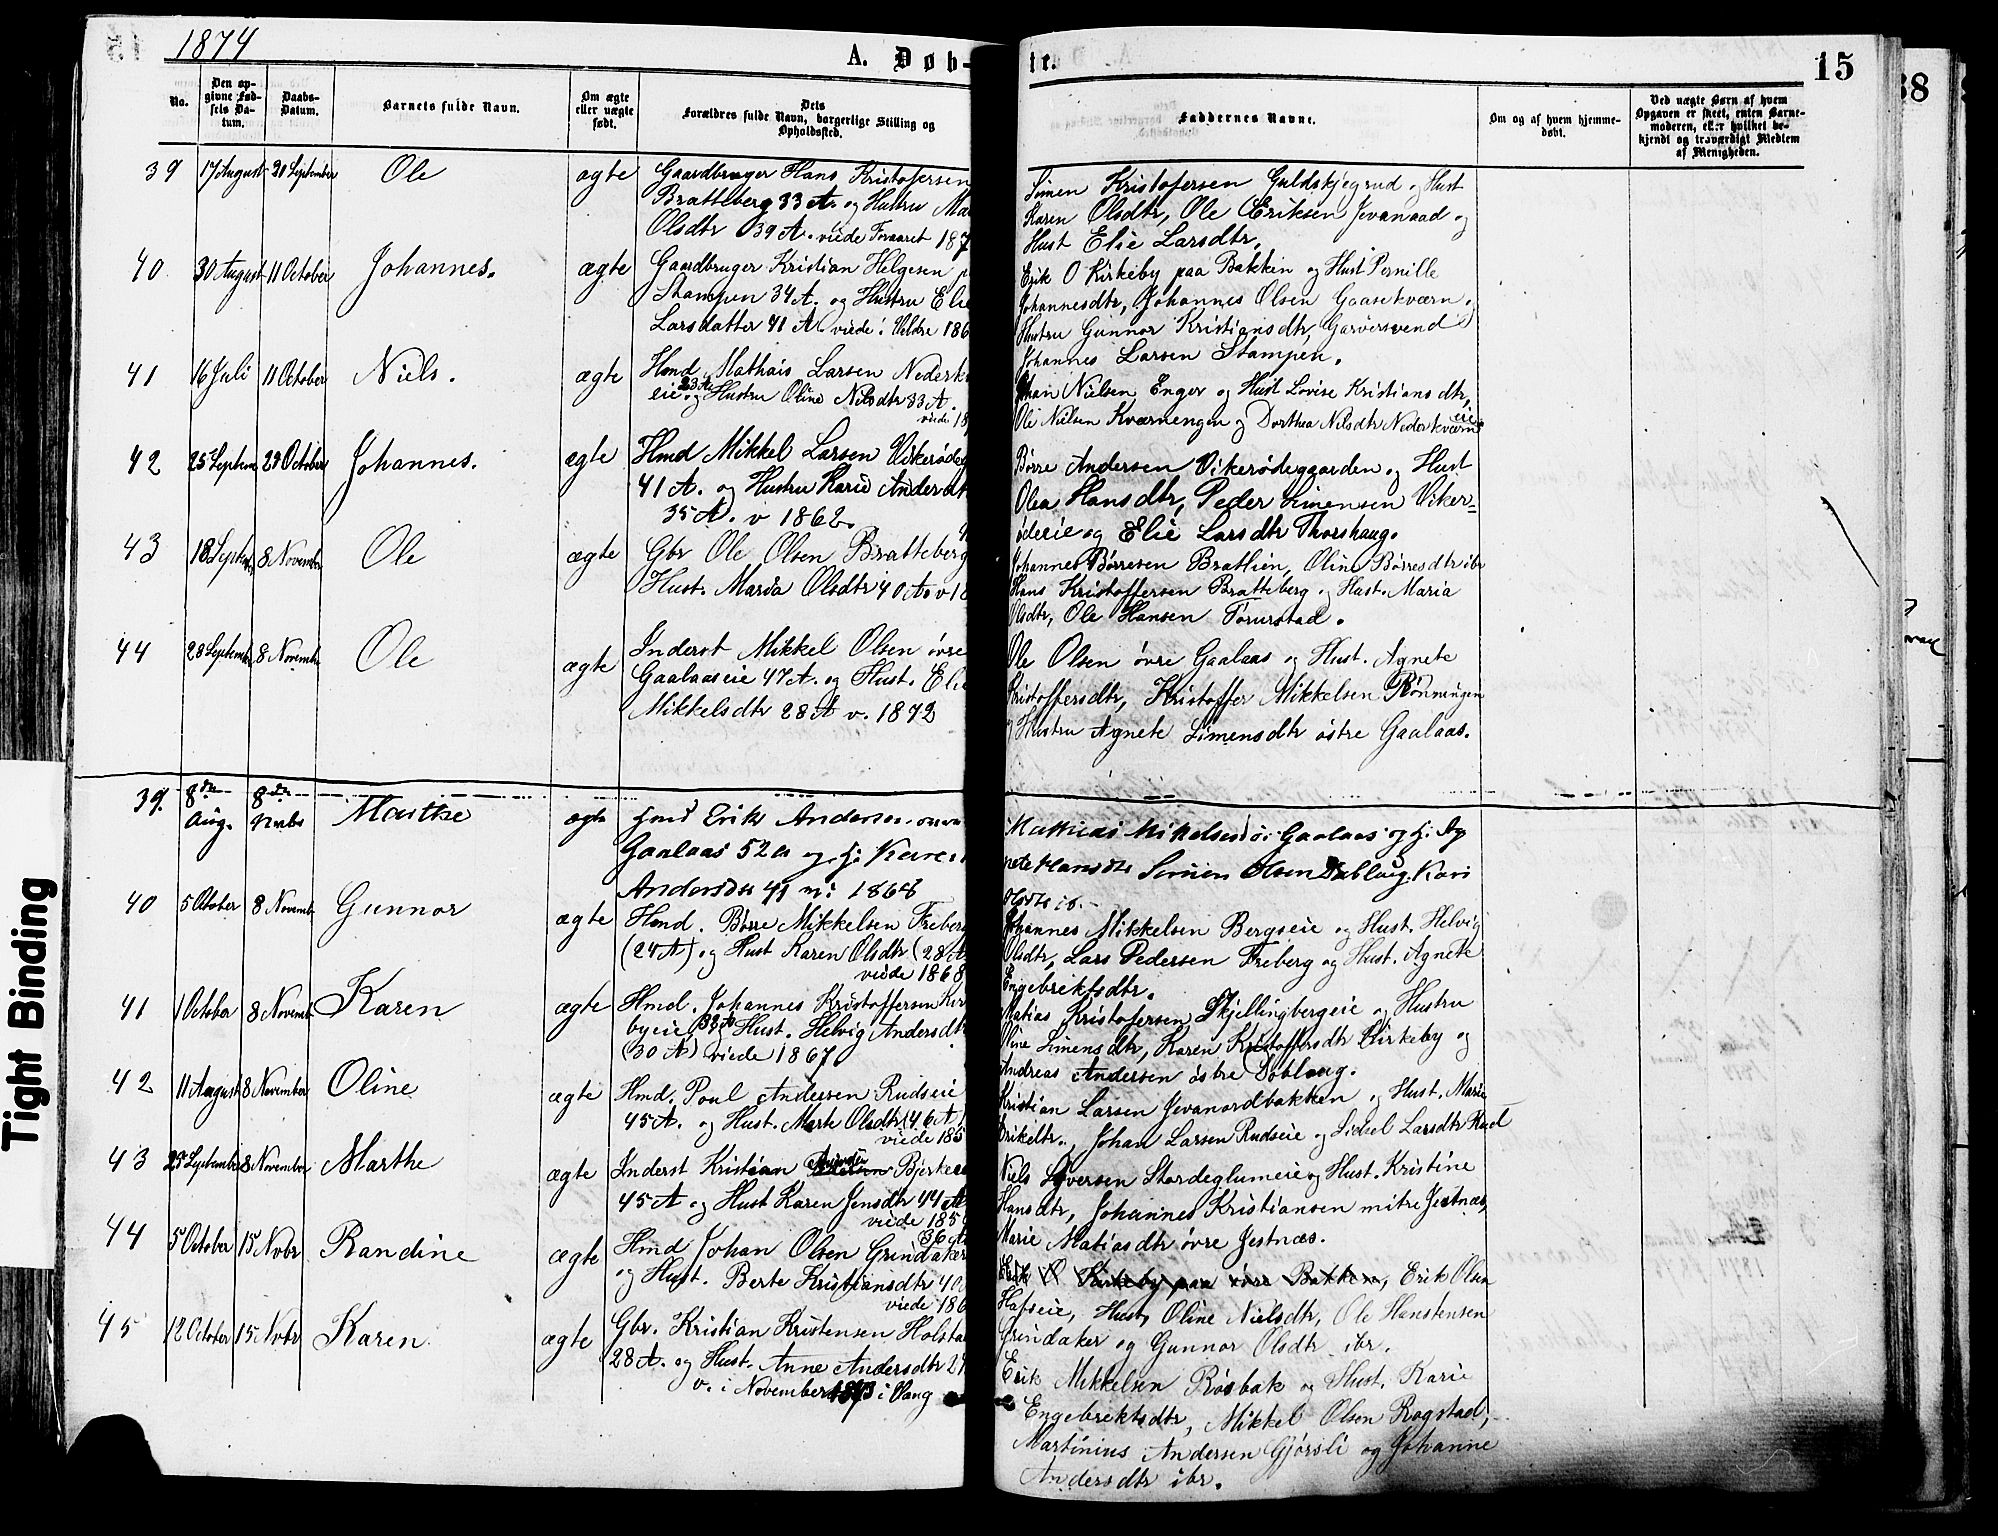 1874
A. Døb-
te.
15
38
No.
Den op-
givne Fød-
sels Da-
tum.
Daabs-
Datum.
Barnets fulde Navn.
Om ægte
eller uægte
født.
Dets
Forældres fulde Navn, borgerlige Stilling og
Opholdssted.
Faddernes Navne.
Om og af hvem hjemme-
døbt.
Ved uægte Børn af hvem
Opgaven er skeet, enten Barne-
moderen, eller hvilket be-
kjendt og troværdigt Medlem
af Menigheden.
39 17 August 21 September Ole ægte Gaardbruger Hans Kristofersen
Bratteberg 33 A. og Hustru Ma
Olsdtr 39 A. viede Foraaret 187
Simen Kristofersen Guldskjegrud og Hust
Karen Olsdtr, Ole Eriksen Jevanaad og
Hust Elie Larsdtr.
40 30 August 11 October Johannes. ægte Gaardbruger Kristian Helgesen p
Stampen 34 A. og Hustru Elie
Larsdatter 41 A. viede i Veldre 186
Erik O Kirkeby paa Bakken og Hust Pernille
Johannesdtr, Johannes Olsen Gaasekværn og
Hustru Gunnor Kristiansdtr, Garversvend
Johannes Larsen Stampen.
41 16 Juli 11 October Niels. ægte Hmd Mathais Larsen Nederkv
eie 33 A og Hustru Oline Nilsdtr 33 A.
viede 18
Johan Nielsen Enger og Hust Lovise Kristiansdtr,
Ole Nilsen Kværnengen og Dorthea Nilsdtr Nederkværn eie
42 25 Septem 29 October Johannes. ægte Hmd Mikkel Larsen Vikerødeg
41 A. og Hustru Karie Andersdt
35 A. v 1862.
Børre Andersen Vikerødegaarden og Hust
Olea Hansdtr, Peder Simensen Viker-
ødeeie og Elie Larsdtr Thorshaug.
43 18 Septem 8 Novembr Ole ægte Gbr Ole Olsen Bratteberg
Hust. Maria Olsdtr 40 A. v 18
Johannes Børresen Bratlien, Oline Børresdtr ibr
Hans Kristoffersen Bratteberg og Hust. Maria
Olsdtr, Ole Hansen Torurstad.
44 28 Septembr 8 Novembr Ole ægte Inderst Mikkel Olsen øvre
Gaalaaseie 47 A. og Hust. Elie
Mikkelsdtr 28 A v. 1872
Ole Olsen øvre Gaalaas og Hust. Agnete
Kristoffersdtr, Kristoffer Mikkelsen Rønningen
og Hustru Agnete Simensdtr østre Gaalaas.
39. 8de Aug. 8de Nvbr Marthe ægte Erik Andersen
Gaalaas 52 A og H. Karen
Andersdtr 41 1868
Mathias Mikelsen Gaalaas og H. Ag
nete Hansdtr Simen Olsen Doblaug, Kari
40 5 Otober 8 Novembr Gunnor ægte Hmd. Børre Mikkelsen Freberg
(24 A) og Hust Karen Olsdtr (28 A
viede 1868
Johannes Mikkelsen Bergseie og Hust. Helvig
Olsdtr, Lars Pedersen Freberg og Hust. Agnete
Engebrektsdtr.
41 1 October 8 Novemb Karen ægte Hmd. Johannes Kristoffersen Kir
byeie (33 A) Hust. Helvig Andersdtr
(30 A) viede 1867
Matias Kristofersen Skjellingbergeie og Hustru
Oline Simensdtr, Karen Kristoffersdtr Kirkeby og
Andreas Andersen østre Doblaug.
42 11 August 8 November Oline ægte Hmd. Poul Andersen Rudseie
45 A. og Hust. Marte Olsdtr (46 A)
viede 185
Kristian Larsen Jevanordbakken og Hust. Marie
Erikdtr., Johan Larsen Rudseie og Sidsel Larsdtr Rud
43 25 Septembr 8 November Marthe ægte Inderst Kristian Bjerkee
45 A og Hust Karen Jensdtr 44 A
viede 185
Niels Syversen Stordeglumeie og Hust. Kristine
Hansdtr, Johannes Kristiansen mitre Jestnæs,
Marie Matiasdtr øvre Jestnæs.
44 5 October 15 Nvbr Randine ægte Hmd Johan Olsen Grindaker 36 A
og Hust. Berte Kristiansdtr 40
viede 186
Erik O Kirkeby paa øvre Bakken, Erik Olsen
Hafseie, Hust, Oline Nielsdtr, Ole Hanstensen
Grindaker og Gunnor Olsdtr ibr.
45 12 October 15 Nvbr Karen ægte Gbr. Kristian Kristensen Holsta
28 A. og Hust. Anne Andersdtr 29
v. i November 1873 i Vang
Erik Mikkelsen Røsbak og Hust. Karie
Engebrektsdtr, Mikkel Olsen Rogstad,
Martinius Andersen Gjørsli og Johanne
Andersdtr ibr.
Tight Binding